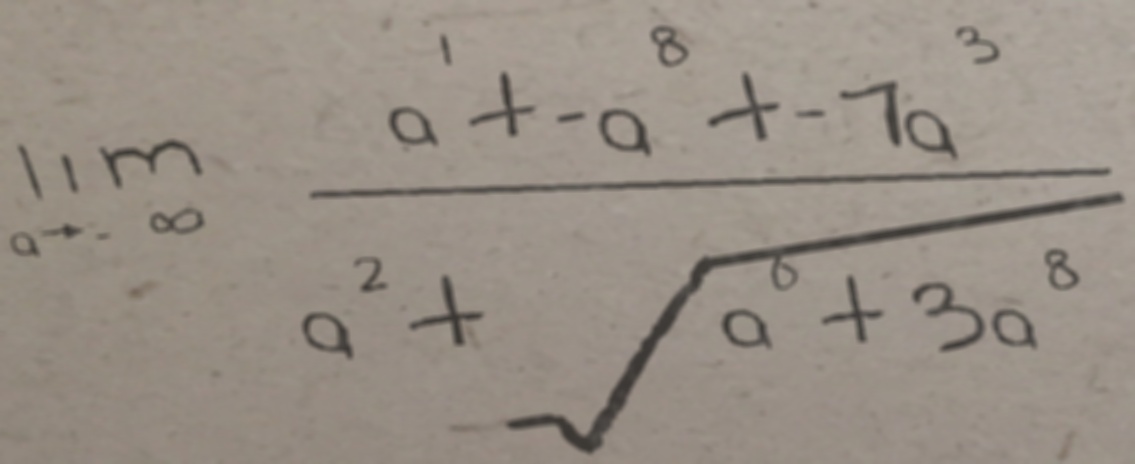 \lim_{a \to -\infty} \frac{a^1 + -a^8 + -7a^3}{a^2 + \sqrt{a^6 + 3a^8}}